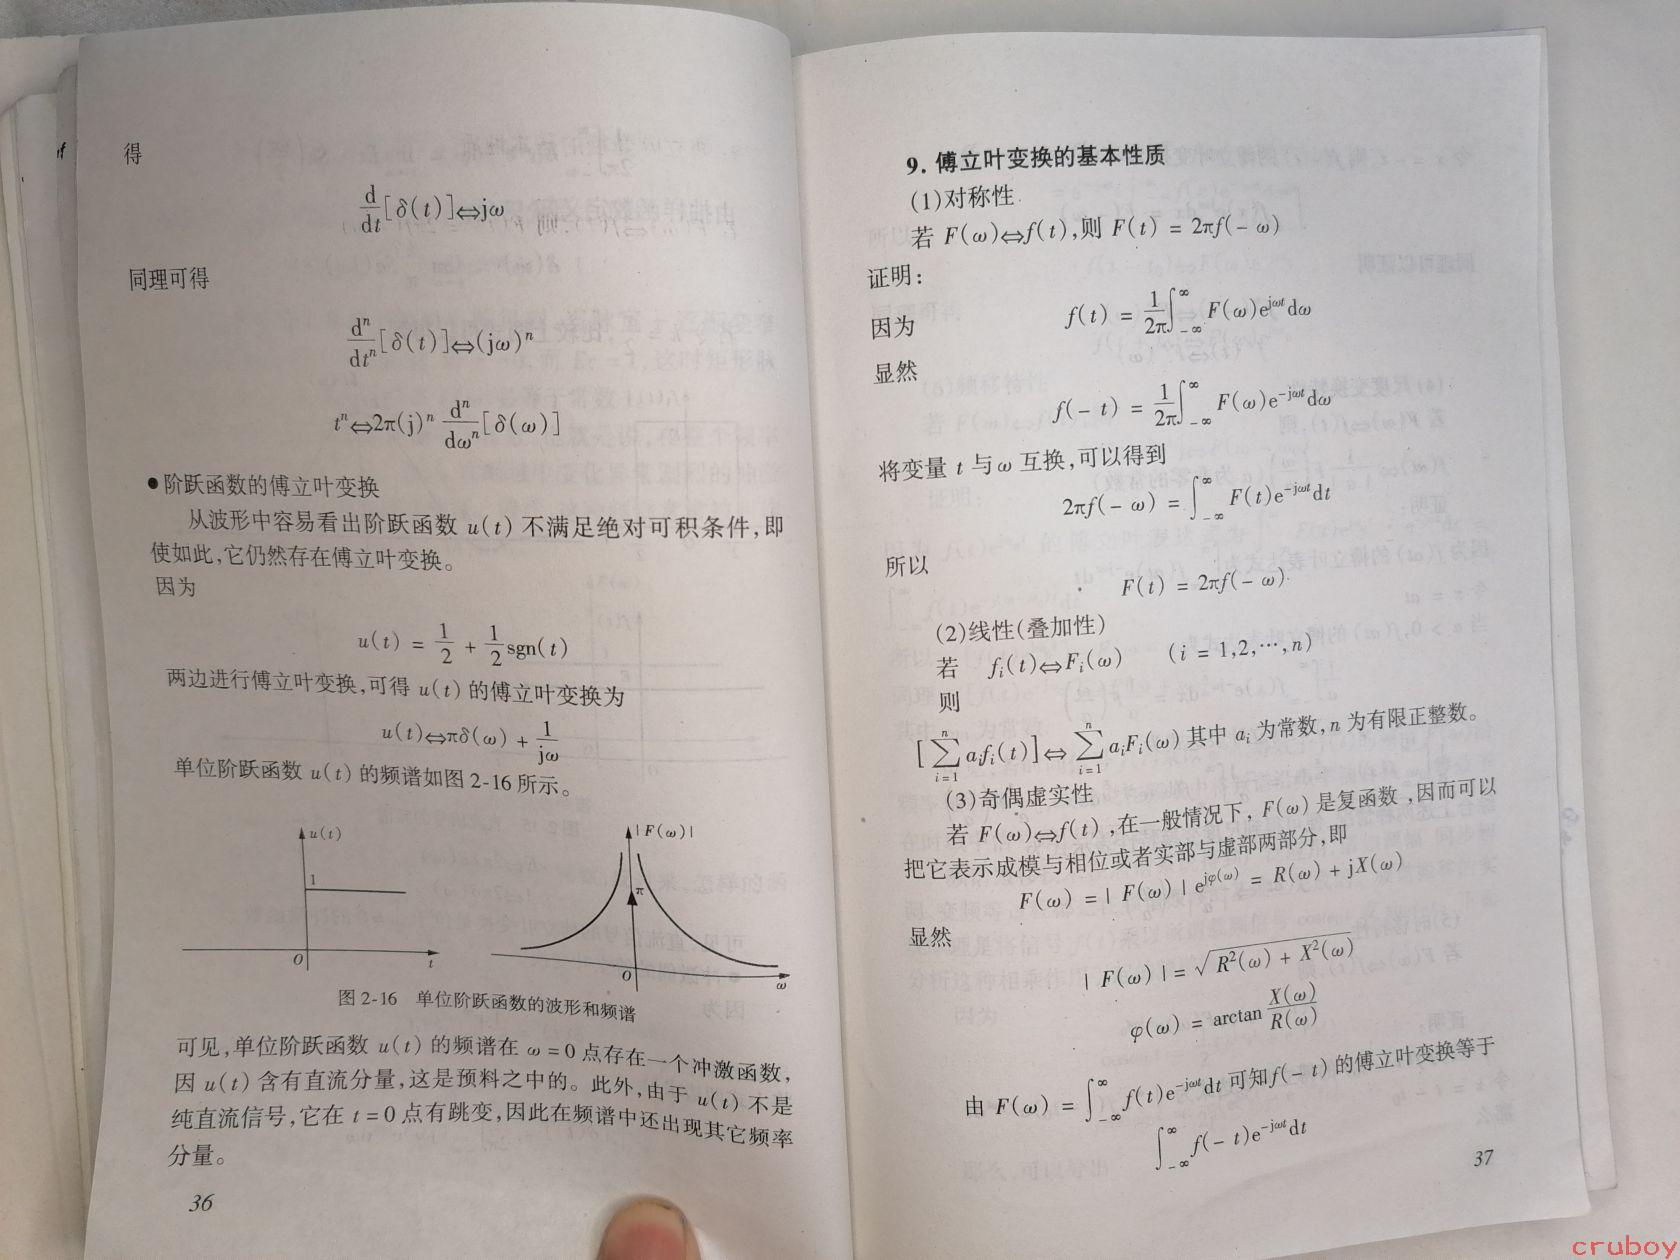 得
d/dt[δ(t)]⇔jω
同理可得
dⁿ/dtⁿ[δ(t)]⇔(jω)ⁿ
tⁿ⇔2π(j)ⁿ dⁿ/dωⁿ[δ(ω)]
●阶跃函数的傅立叶变换
从波形中容易看出阶跃函数 u(t) 不满足绝对可积条件,即
使如此,它仍然存在傅立叶变换。
因为
u(t) = 1/2 + 1/2 sgn(t)
两边进行傅立叶变换,可得 u(t) 的傅立叶变换为
u(t)⇔πδ(ω) + 1/jω
单位阶跃函数 u(t) 的频谱如图 2-16 所示。
u(t)
1
O
t
|F(ω)|
π
O
ω
图 2-16 单位阶跃函数的波形和频谱
可见,单位阶跃函数 u(t) 的频谱在 ω = 0 点存在一个冲激函数,
因 u(t) 含有直流分量,这是预料之中的。此外,由于 u(t) 不是
纯直流信号,它在 t = 0 点有跳变,因此在频谱中还出现其它频率
分量。
36
9. 傅立叶变换的基本性质
(1)对称性
若 F(ω)⇔f(t),则 F(t) = 2πf(- ω)
证明:
因为 f(t) = 1/2π ∫_{-∞}^{∞} F(ω)e^{jωt}dω
显然
f(- t) = 1/2π ∫_{-∞}^{∞} F(ω)e^{-jωt}dω
将变量 t 与 ω 互换,可以得到
2πf(- ω) = ∫_{-∞}^{∞} F(t)e^{-jωt}dt
所以
F(t) = 2πf(- ω)
(2)线性(叠加性)
若 fᵢ(t)⇔Fᵢ(ω) (i = 1,2,…,n)
则
[∑_{i=1}^{n} aᵢfᵢ(t)]⇔∑_{i=1}^{n} aᵢFᵢ(ω) 其中 aᵢ 为常数, n 为有限正整数。
(3)奇偶虚实性
若 F(ω)⇔f(t) ,在一般情况下, F(ω) 是复函数 ,因而可以
把它表示成模与相位或者实部与虚部两部分,即
F(ω) = | F(ω) | e^{jφ(ω)} = R(ω) + jX(ω)
显然
| F(ω) | = √(R²(ω) + X²(ω))
φ(ω) = arctan X(ω)/R(ω)
由 F(ω) = ∫_{-∞}^{∞} f(t)e^{-jωt}dt 可知 f(- t) 的傅立叶变换等于
∫_{-∞}^{∞} f(- t)e^{-jωt}dt
37
cruboy